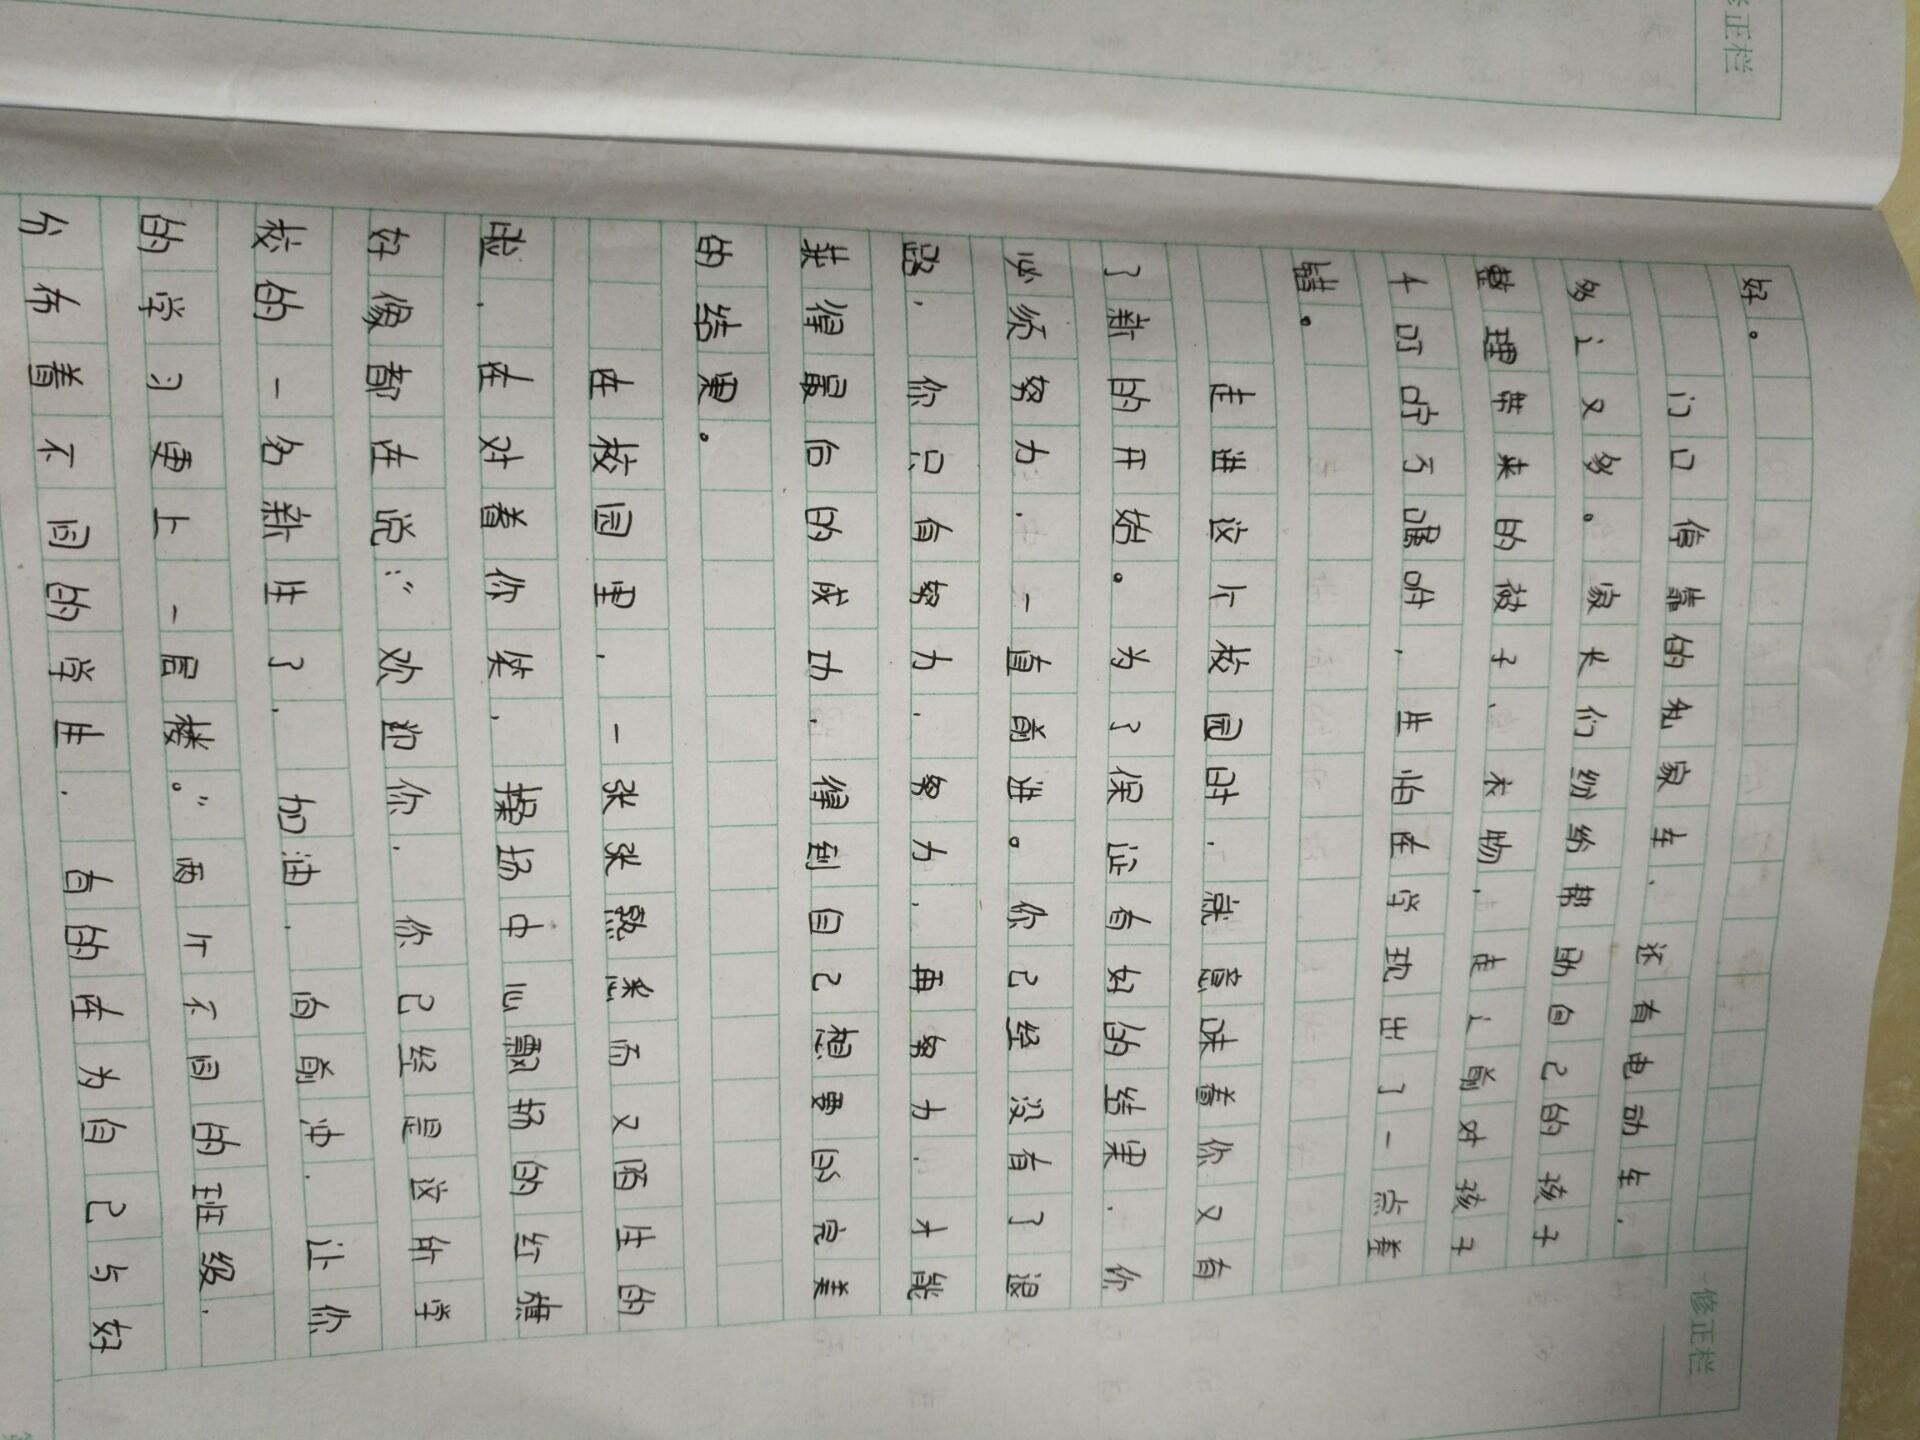 修正栏
好。
门口停靠的私家车，还有电动车，
多之又多。家长们纷纷帮助自己的孩子
整理带来的被子、衣物，走之前对孩子
千叮咛万嘱咐，生怕在学玩出了一点差
错。
走进这个校园时，就意味着你又有
了新的开始。为了保证有好的结果，你
必须努力，一直前进。你已经没有了退
路，你只有努力，努力，再努力，才能
获得最后的成功，得到自己想要的完美
的结果。
在校园里，一张张熟悉而又陌生的
脸，在对着你笑，操场中心飘扬的红旗
好像都在说：“欢迎你，你已经是这所学
校的一名新生了，加油，向前冲，让你
的学习更上一层楼。”两个不同的班级，
分布着不同的学生，有的在为自己与好
修正栏